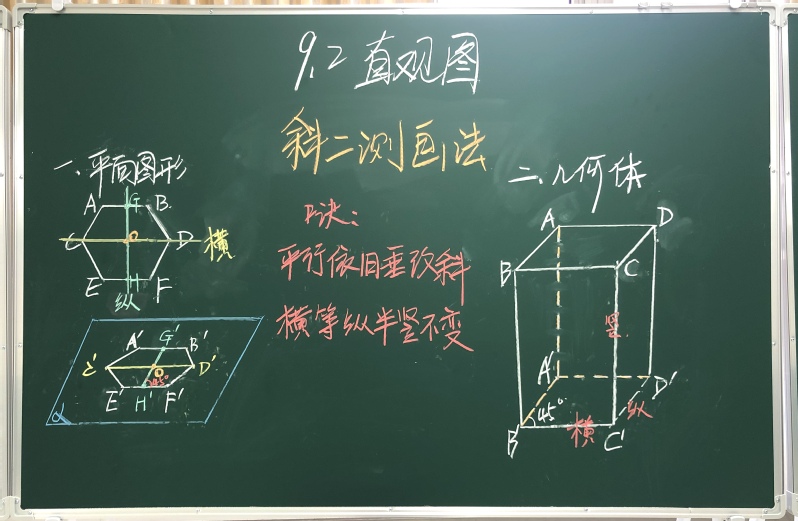 9.2 直观图
斜二测画法
一、平面图形
A G B
C O D 横
E H F
纵
A' G' B'
C' O D'
45°
E' H' F'
α
口诀:
平行依旧垂改斜
横等纵半竖不变
二、几何体
A D
B C
竖
A' D'
45° 纵
B' 横 C'